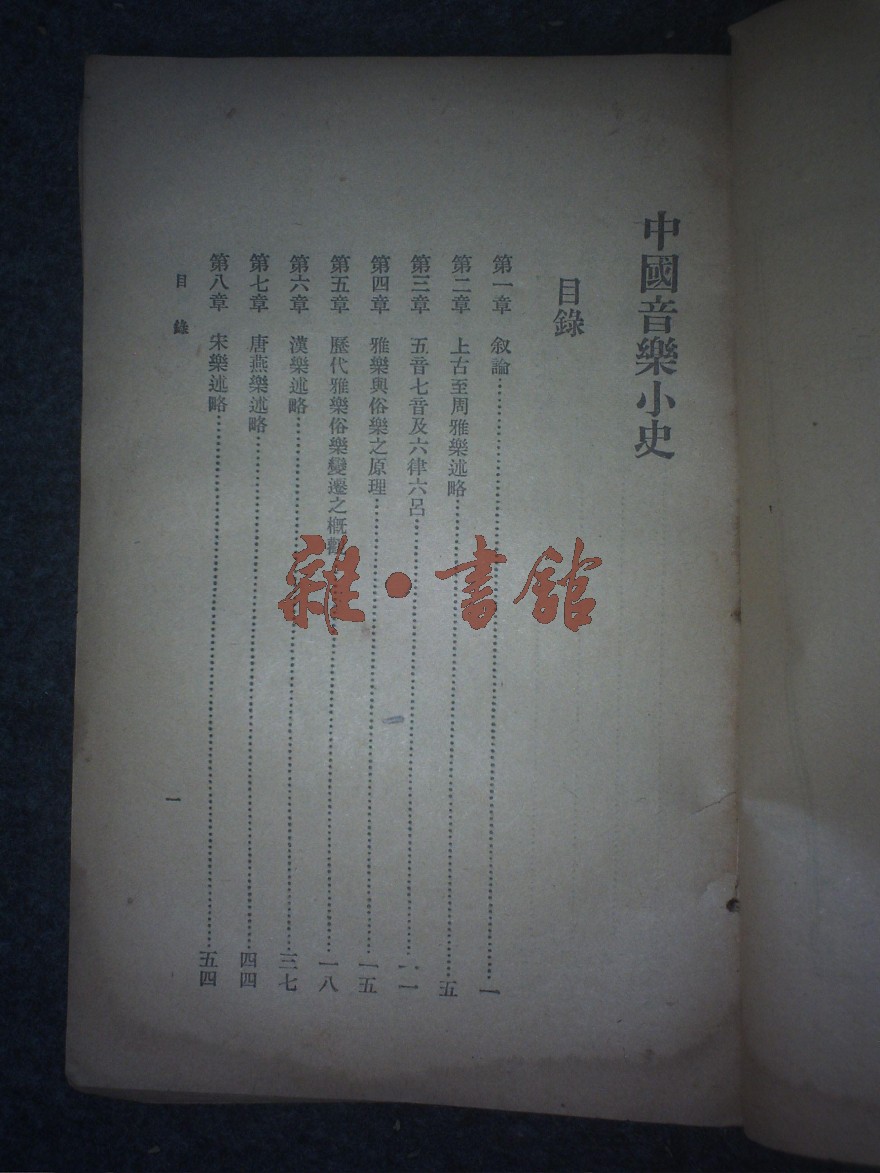 中國音樂小史
目錄
第一章 叙論……一
第二章 上古至周雅樂述略……五
第三章 五音七音及六律六呂……一一
第四章 雅樂與俗樂之原理……一五
第五章 歷代雅樂俗樂變遷之概觀……一八
第六章 漢樂述略……三七
第七章 唐燕樂述略……四四
第八章 宋樂述略……五四
目錄
一
雜·書館